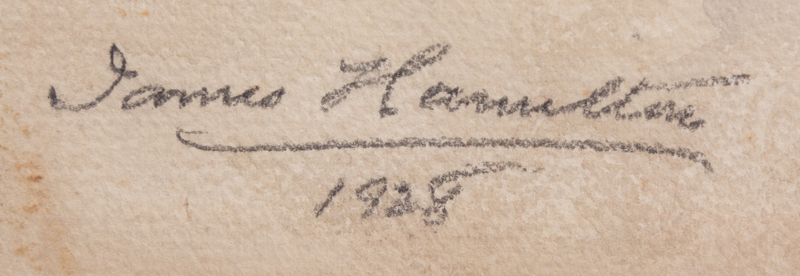 James Hamilton
1928